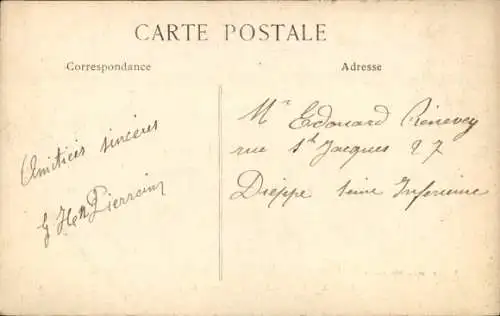 CARTE POSTALE
Correspondance
Adresse
Amitiés sincères
Pierrain
Mr Edouard
rue St Jacques 27
Dieppe Seine Inférieure